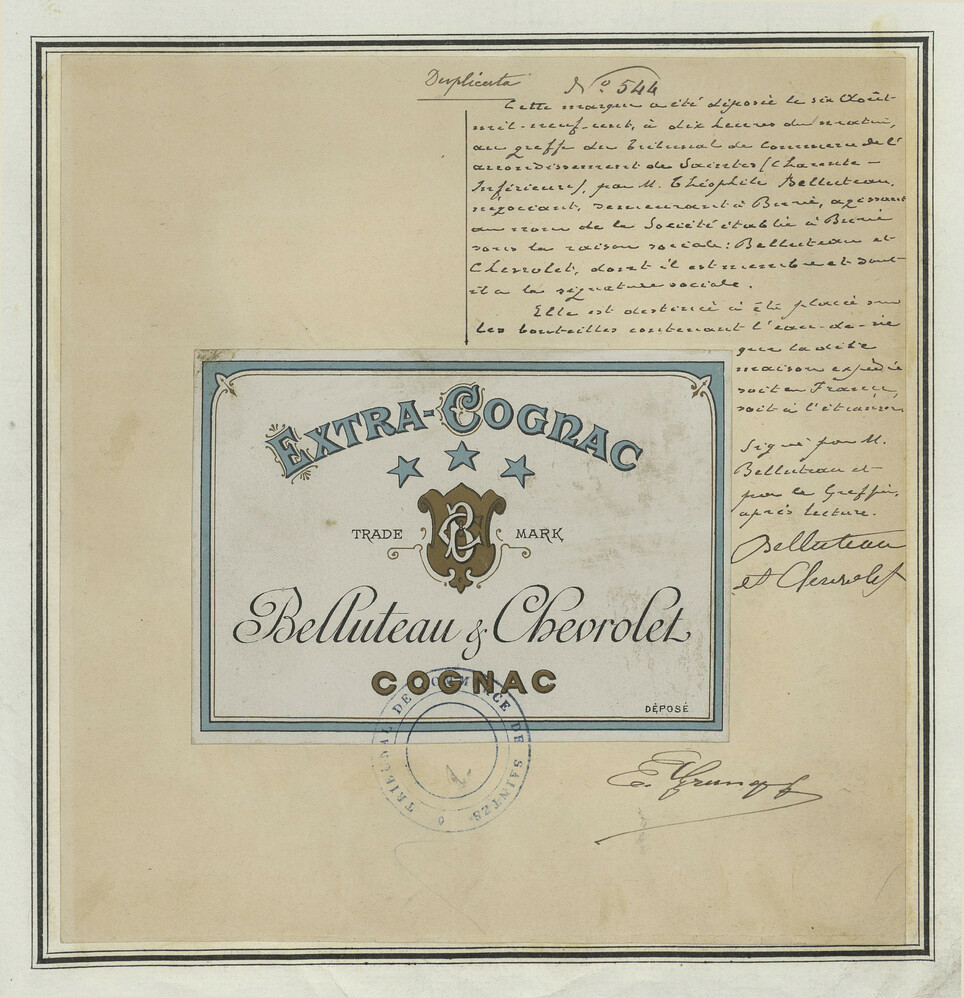 Duplicata N° 544
Cette marque a été déposée le six Août
mil-neuf-cent, à dix heures du matin,
au greffe du Tribunal de Commerce de l'
arrondissement de Saintes (Charente-
Inférieure), par M. Théophile Belluteau,
négociant, demeurant à Burie, agissant
au nom de la Société établie à Burie
sous la raison sociale: Belluteau et
Chevrolet, dont il est membre et dont
il a la signature sociale.
Elle est destinée à été placée sur
les bouteilles contenant l'eau-de-vie
que la dite
maison expédie
soit en France,
soit à l'étranger.
Signé par M.
Belluteau et
par le Greffier,
après lecture.
Belluteau
et Chevrolet
EXTRA-COGNAC
TRADE MARK
BC
Belluteau & Chevrolet
COGNAC
DÉPOSÉ
TRIBUNAL DE COMMERCE DE SAINTES